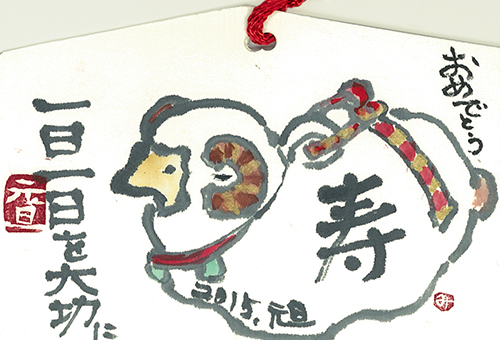 おめでとう
寿
2015.元旦
一日一日を大切に
元旦